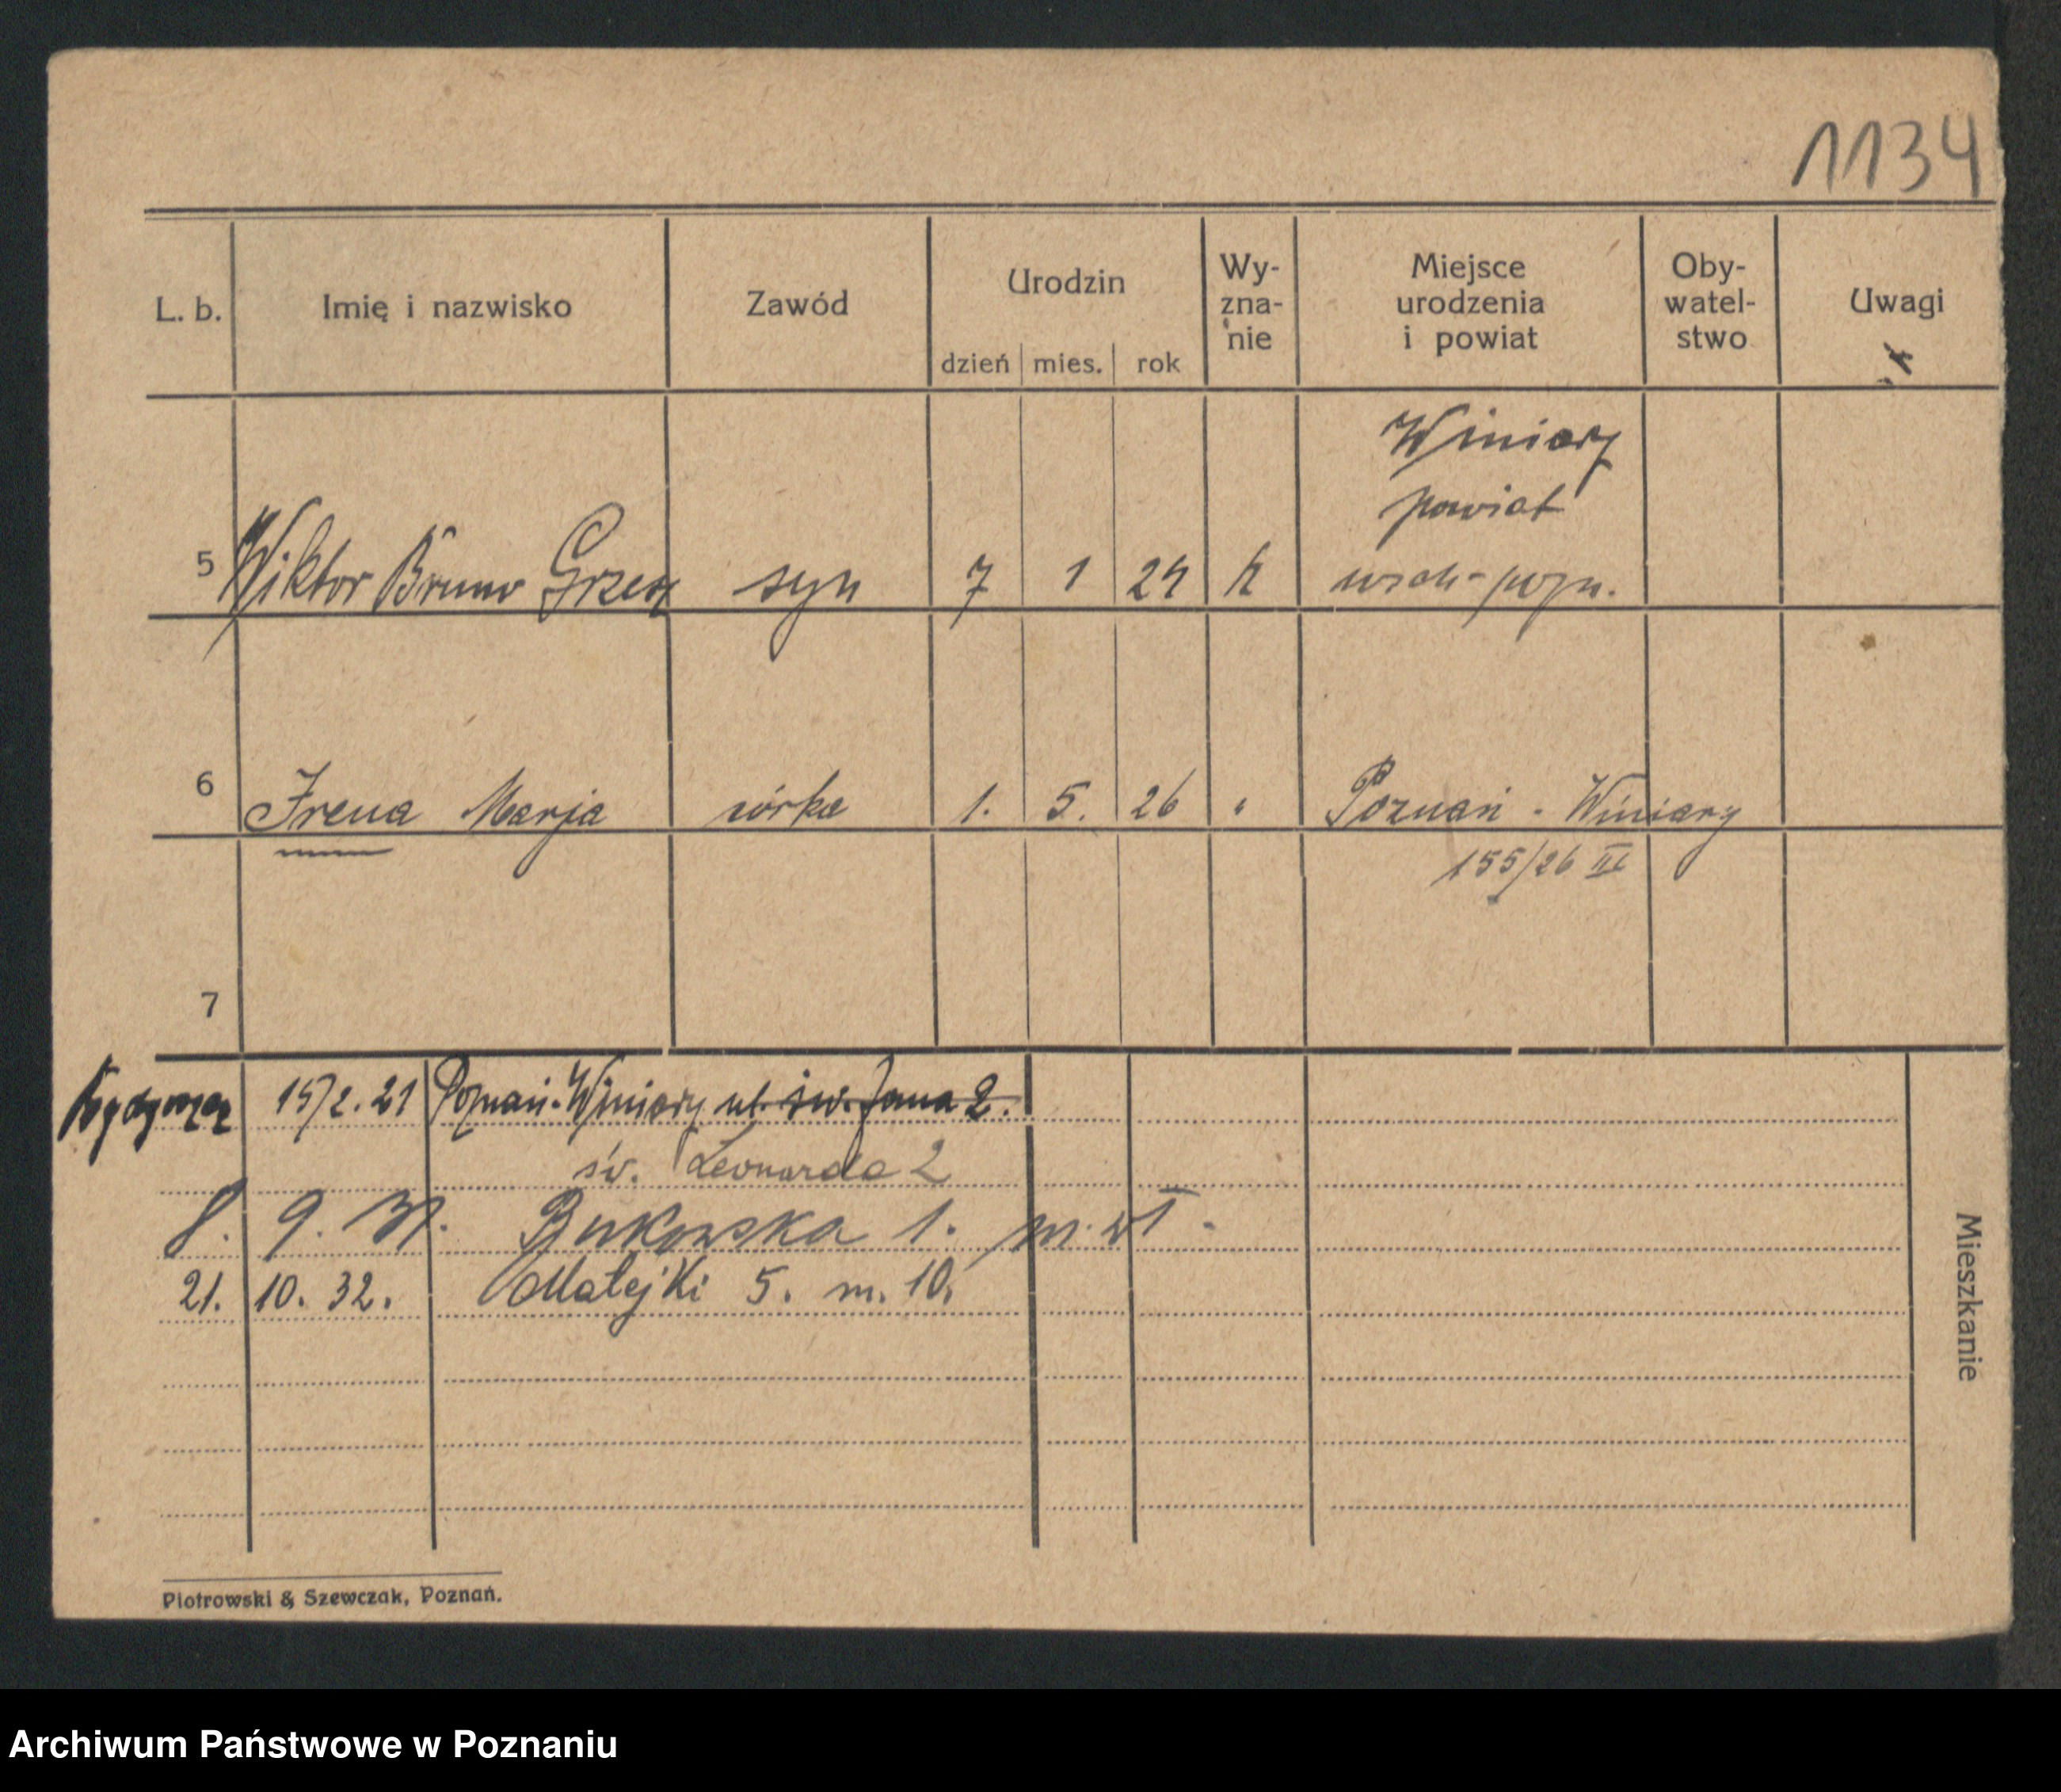 1134
L. b. Imię i nazwisko Zawód Urodzin dzień mies. rok Wy-zna-nie Miejsce urodzenia i powiat Oby-watel-stwo Uwagi
Winiary
powiat
5 Wiktor Bruno syn 7 1 24 k wsch-pozn.
6 Irena Marja córka 1. 5. 26 " Poznań - Winiary
155/26 III
7
15/2. 21 Poznań-Winiary ul. św. Jana 2.
św. Leonarda 2
8. 9. 31. Bukowska 1. m. wł.
21. 10. 32. Matejki 5. m. 10.
Mieszkanie
Piotrowski & Szewczak, Poznań.
Archiwum Państwowe w Poznaniu